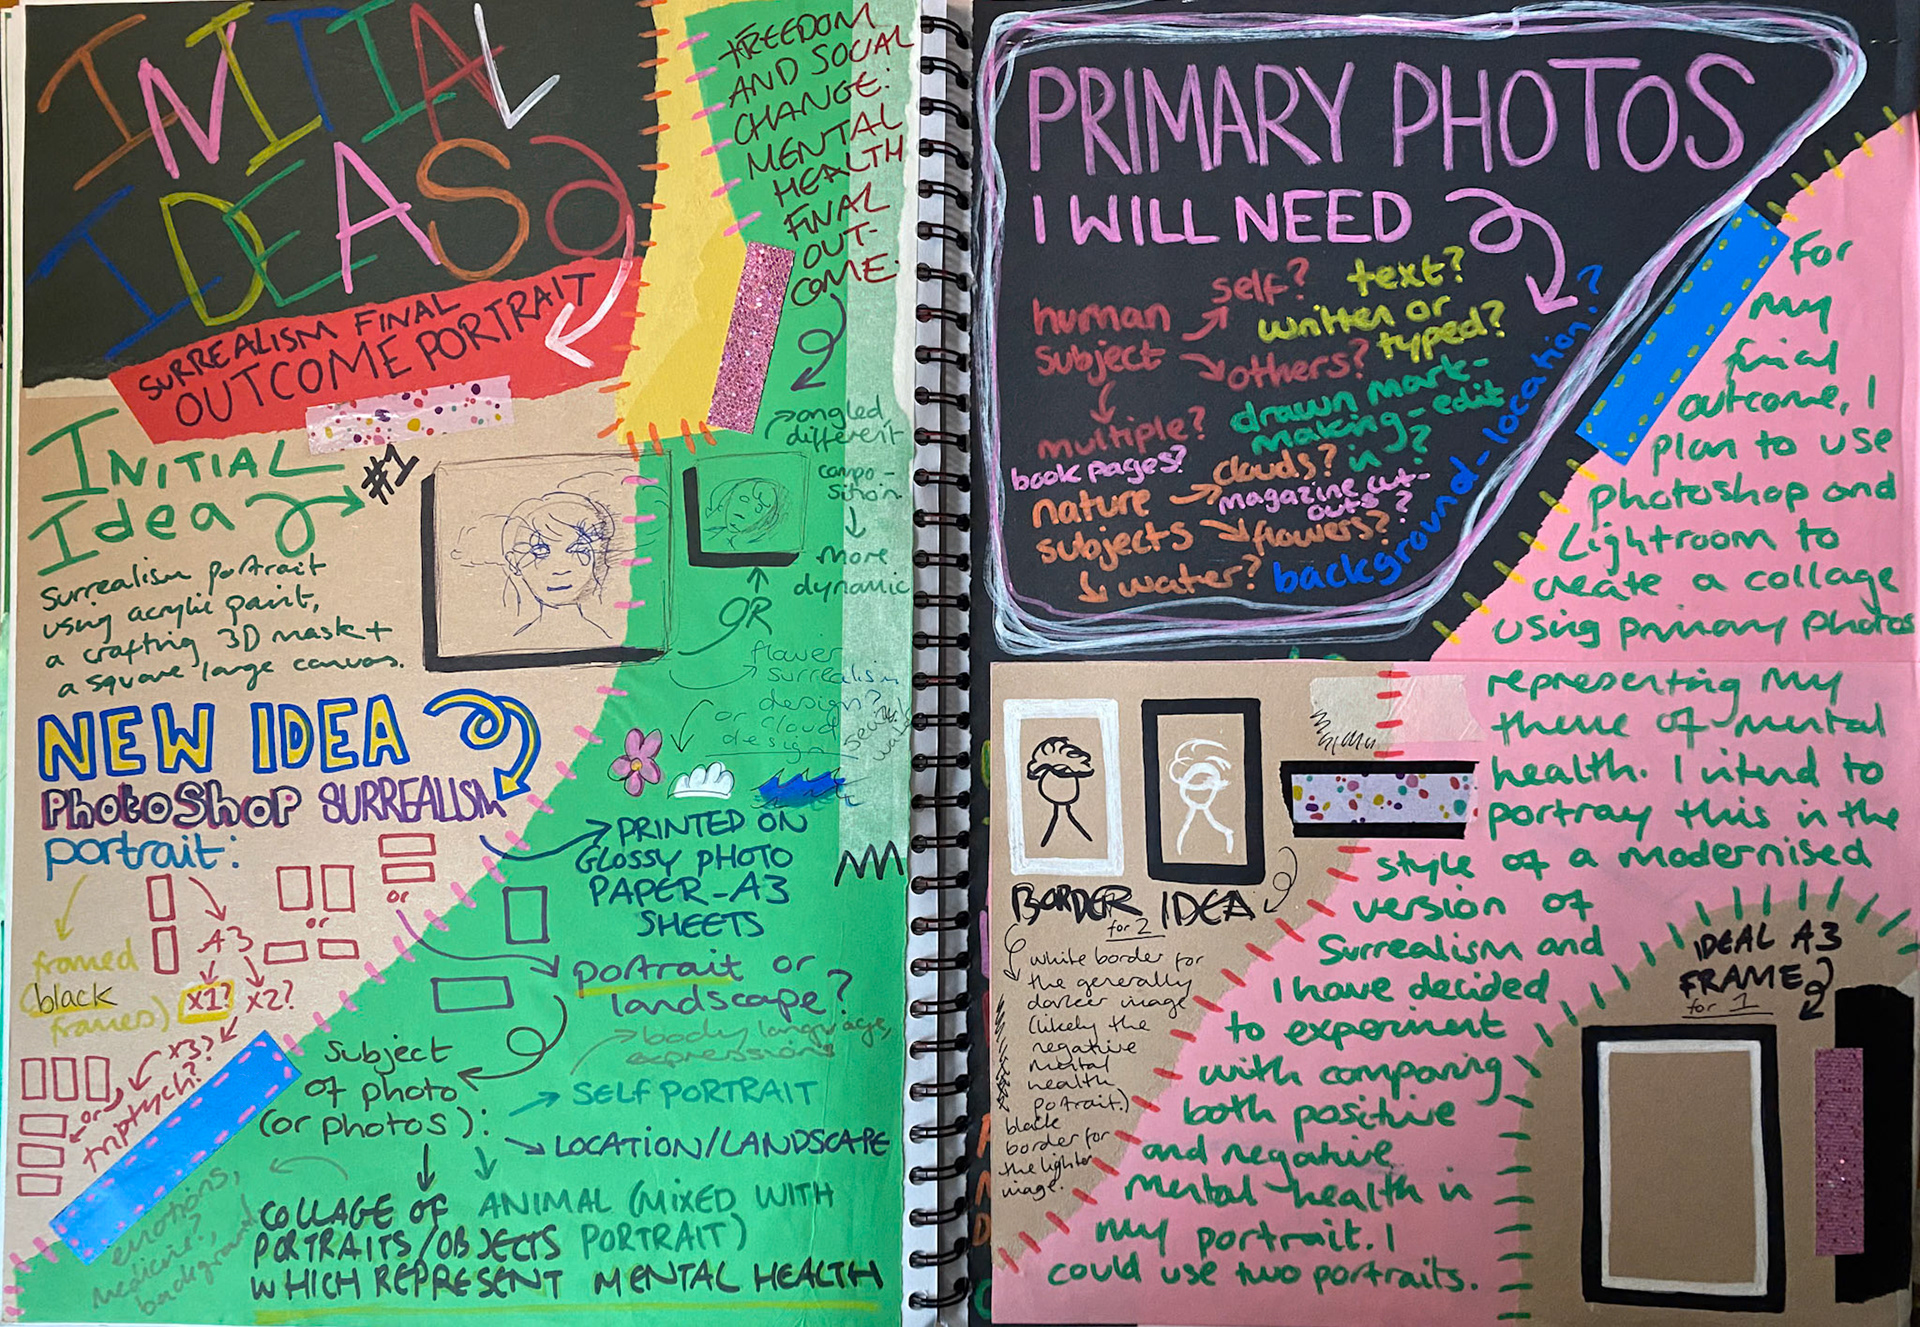 INITIAL
IDEAS
SURREALISM FINAL
OUTCOME PORTRAIT
FREEDOM
AND SOCIAL
CHANGE:
MENTAL
HEALTH
FINAL
OUT-
COME.
INITIAL
Idea
#1
Surrealism portrait
using acrylic paint,
a crafting 3D mask +
a square large canvas.
angled
different
compo-
sition
More
dynamic
OR
flower
surrealism
design?
or cloud
design
NEW IDEA
PHOTOSHOP SURREALISM
portrait:
framed
(black
frames)
A3
x1? x2?
x3?
triptych?
or
or
or
PRINTED ON
GLOSSY PHOTO
PAPER-A3
SHEETS
portrait or
landscape?
body language,
expressions
Subject
of photo
(or photos):
SELF PORTRAIT
LOCATION/LANDSCAPE
ANIMAL (MIXED WITH
PORTRAIT)
COLLAGE OF
PORTRAITS/OBJECTS
WHICH REPRESENT MENTAL HEALTH
emotions,
medicine?,
background
PRIMARY PHOTOS
I WILL NEED
human
subject
self?
others?
multiple?
text?
written or
typed?
drawn mark-
making - edit
in?
book pages?
nature
subjects
clouds?
magazine cut-
outs?
flowers?
water?
background - location?
For
my
final
outcome, I
plan to use
photoshop and
Lightroom to
create a collage
using primary photos
representing my
theme of mental
health. I intend to
portray this in the
style of a modernised
version of
Surrealism and
I have decided
to experiment
with comparing
both positive
and negative
mental health in
my portrait. I
could use two portraits.
BORDER IDEA
for 2
white border for
the generally
darker image
(likely the
negative
mental
health
portrait.)
black
border for
the lighter
image.
IDEAL A3
FRAME
for 1